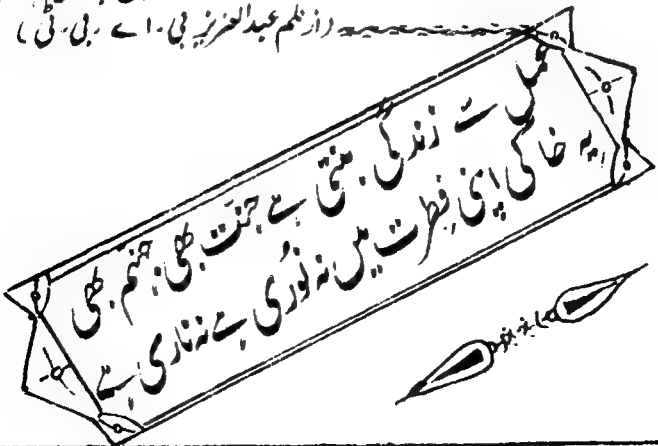 (از قلم عبدالعزیز بی۔ اے۔ بی۔ ٹی)
عمل سے زندگی بنتی ہے جنت بھی، جہنم بھی
یہ خاکی اپنی فطرت میں نہ نوری ہے نہ ناری ہے